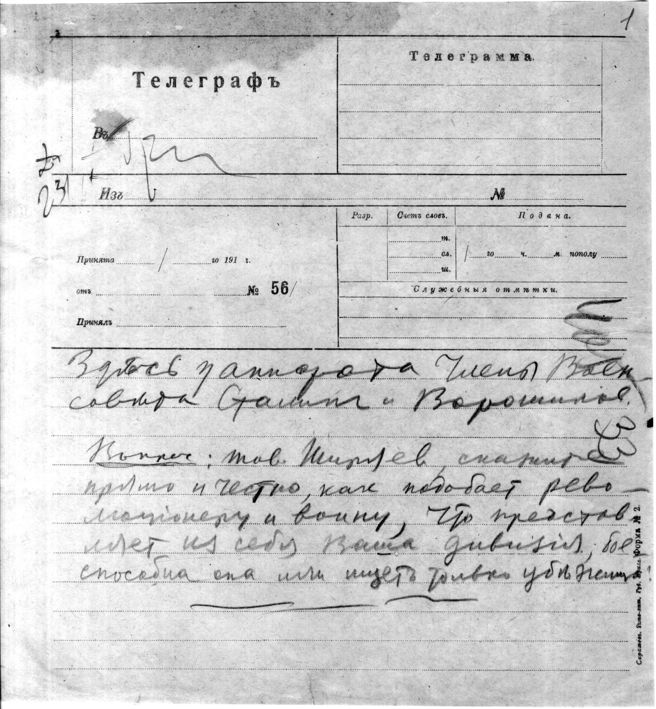 1
Телеграфъ
Телеграмма.
Въ
23
Изъ №
Разр. Счетъ словъ. Подана.
т.
сл. го ч. м. пополу
ш.
Принята / го 191 г.
отъ № 56/
Служебныя отмѣтки.
Принялъ
Здѣсь у аппарата Члены Воен
совѣта Сталин и Ворошилов.
33
Вопрос: тов. Ширяев, скажите
прямо и честно, как подобает рево–
люционеру и воину, что представ
ляет из себя Ваша дивизия, бое
способна она или ищетъ только убѣжища?
Саратовъ. Типо-лит. Губ. Форма № 2.